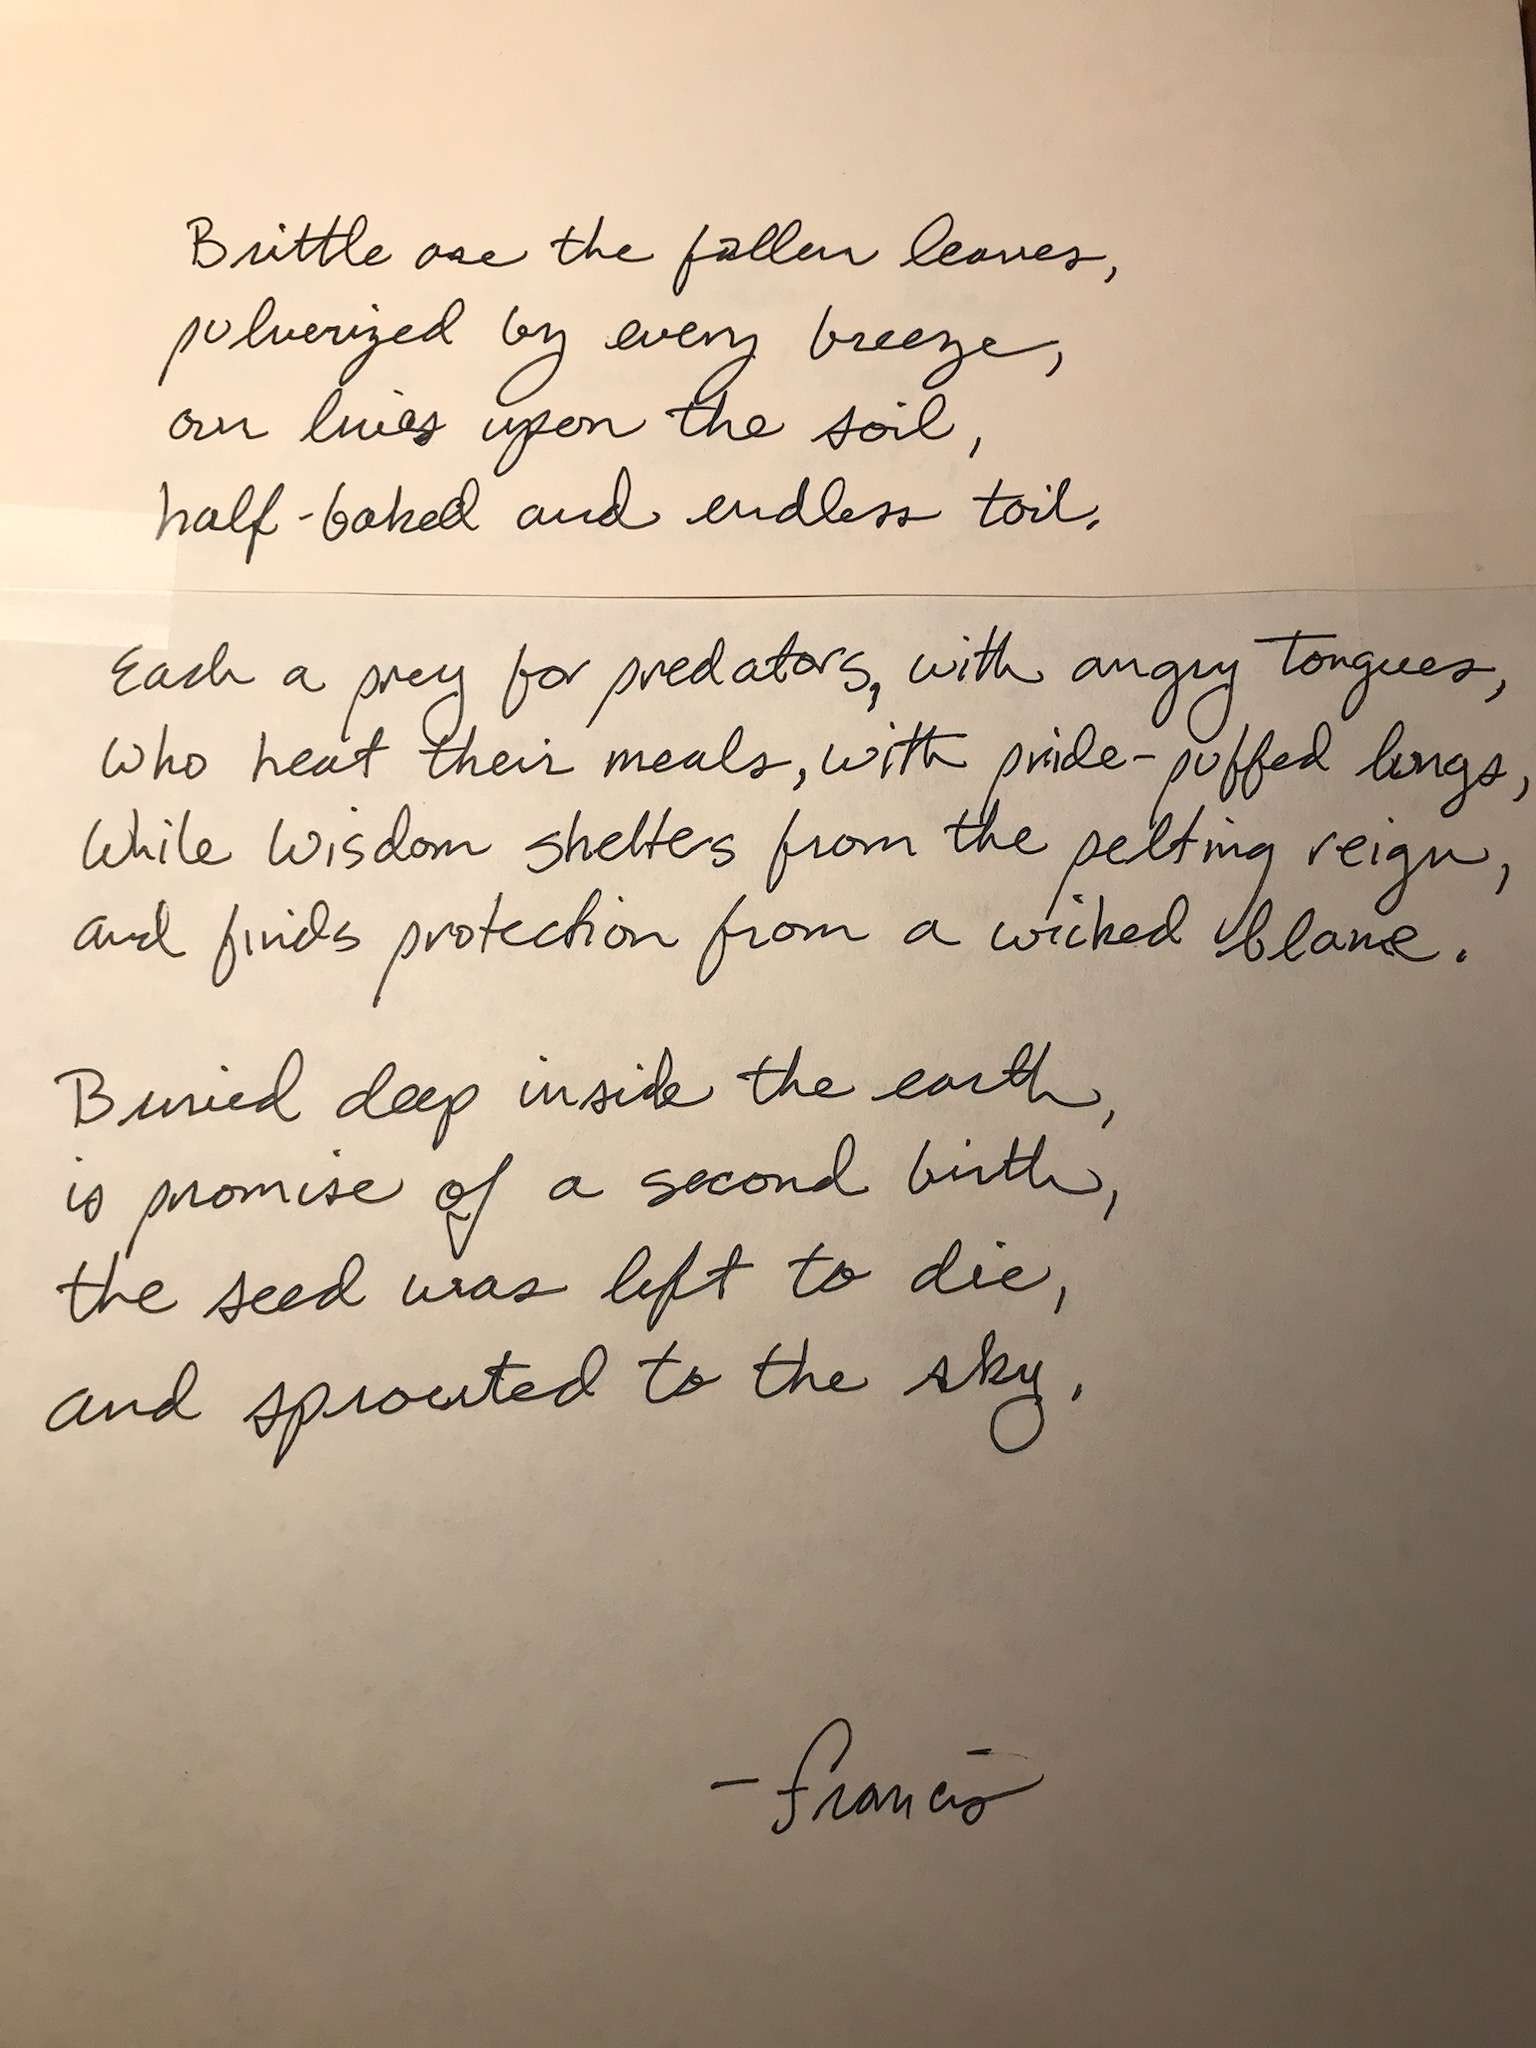 Brittle are the fallen leaves,
pulverized by every breeze,
our lives upon the soil,
half-baked and endless toil.
Each a prey for predators, with angry tongues,
Who heat their meals, with pride-puffed lungs,
While Wisdom shelters from the pelting reign,
and finds protection from a wicked blame.
Buried deep inside the earth,
is promise of a second birth,
the seed was left to die,
and sprouted to the sky.
- Francis